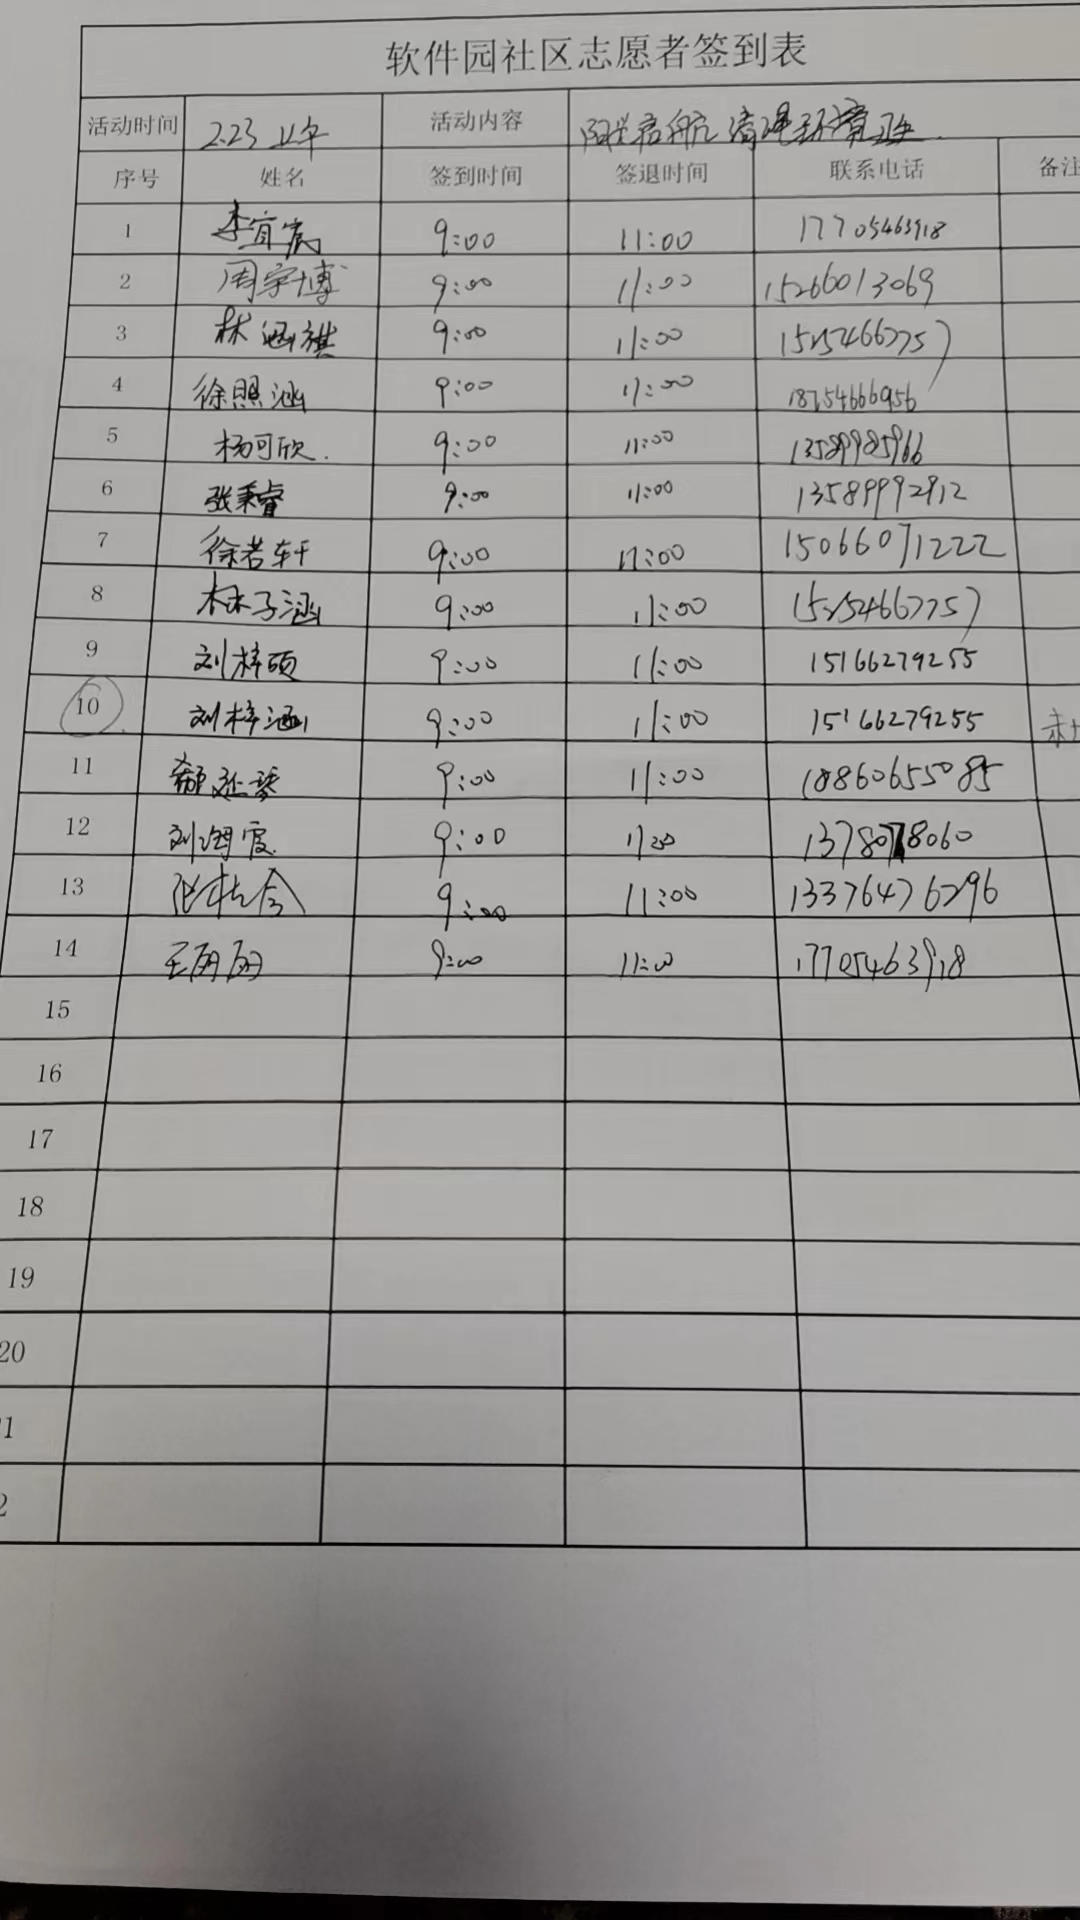 软件园社区志愿者签到表
活动时间 2.23 上午 活动内容 启航 清理环境
序号 姓名 签到时间 签退时间 联系电话 备注
1 李宜宸 9:00 11:00 17705463918
2 周宇博 9:00 11:00 15266013069
3 林涵祺 9:00 11:00 15254667757
4 徐照涵 9:00 11:00 18254666956
5 杨可欣. 9:00 11:00 13589985966
6 张秉睿 9:00 11:00 13589992912
7 徐若轩 9:00 11:00 15066071222
8 林子涵 9:00 11:00 15254667757
9 刘梓硕 9:00 11:00 15166279255
10 刘梓涵 9:00 11:00 15166279255
11 9:00 11:00 18860655085
12 刘海霞 9:00 11:00 13780718060
13 张 9:00 11:00 13376476296
14 王丽丽 9:00 11:00 17705463918
15
16
17
18
19
20
1
2